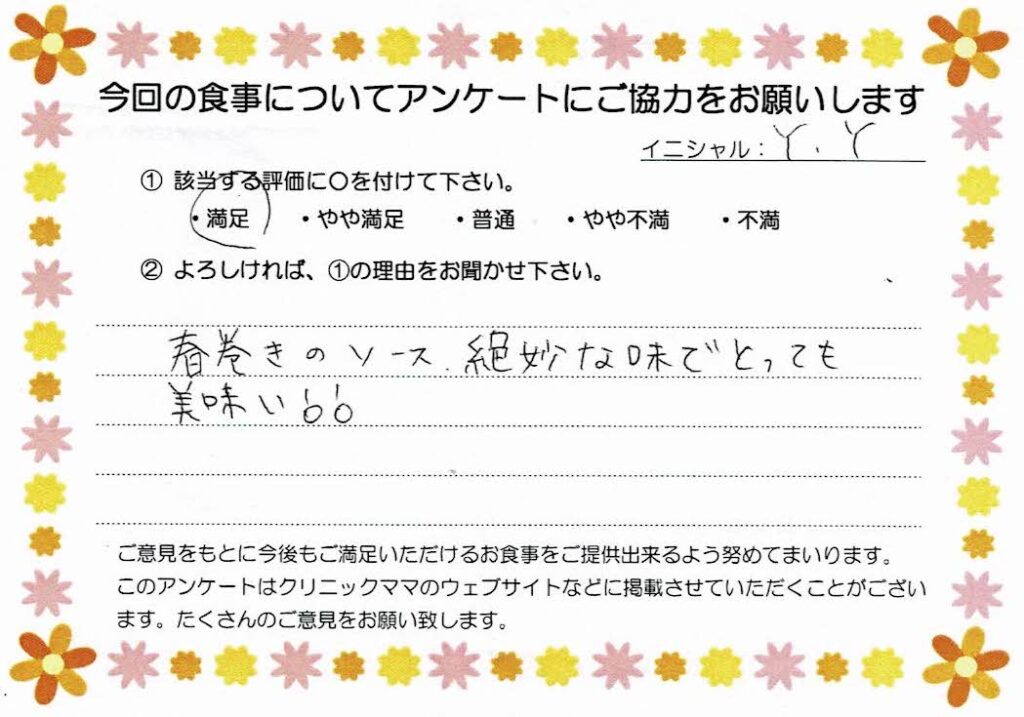 今回の食事についてアンケートにご協力をお願いします
イニシャル：Y．Y
① 該当する評価に〇を付けて下さい。
・満足 ・やや満足 ・普通 ・やや不満 ・不満
② よろしければ、①の理由をお聞かせ下さい。
春巻きのソース、絶妙な味でとっても
美味い!!
ご意見をもとに今後もご満足いただけるお食事をご提供出来るよう努めてまいります。
このアンケートはクリニックママのウェブサイトなどに掲載させていただくことがござい
ます。たくさんのご意見をお願い致します。